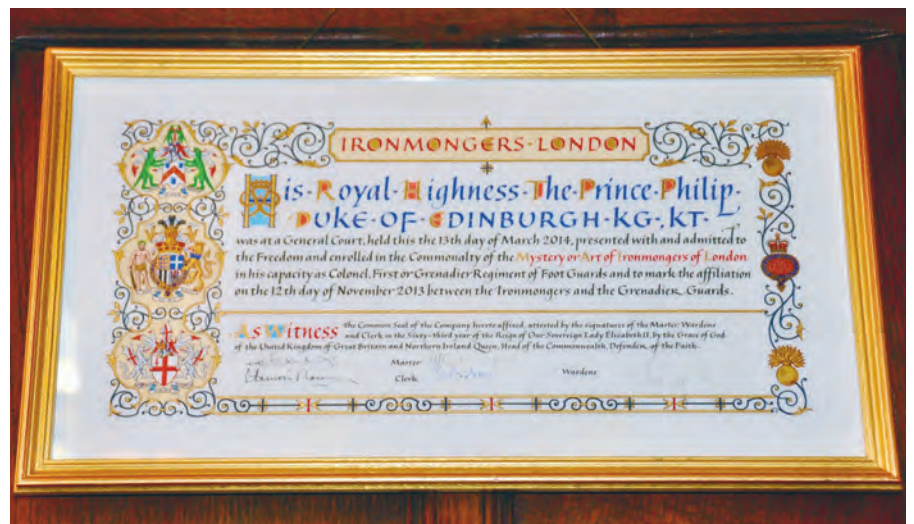 IRONMONGERS·LONDON
His·Royal·Highness·The·Prince·Philip·
DUKE·OF·EDINBURGH·KG·, KT·
was at a General Court, held this the 13th day of March 2014, presented with and admitted to
the Freedom and enrolled in the Commonalty of the Mystery or Art of Ironmongers of London
in his capacity as Colonel, First or Grenadier Regiment of Foot Guards and to mark the affiliation
on the 12th day of November 2013 between the Ironmongers and the Grenadier Guards.
As Witness the Common Seal of the Company hereto affixed, attested by the signatures of the Master Wardens
and Clerk in the Sixty-third year of the Reign of Our Sovereign Lady Elizabeth II, by the Grace of God
of the United Kingdom of Great Britain and Northern Ireland Queen, Head of the Commonwealth, Defender, of the Faith.
Master
Clerk
Wardens